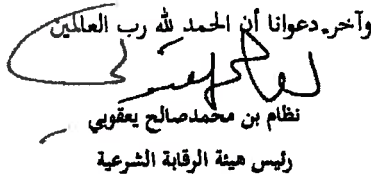 وآخر دعوانا أن الحمد لله رب العالمين
نظام بن محمدصالح يعقوبي
رئيس هيئة الرقابة الشرعية